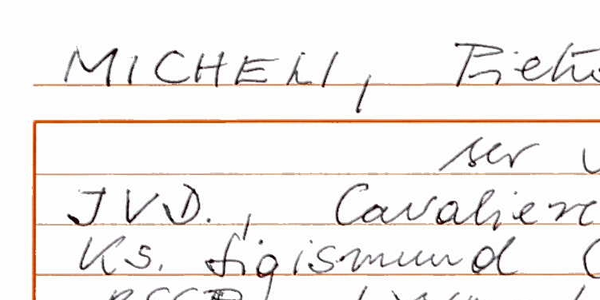 MICHELI, Pietro
ser
JVD., Cavaliere
Ks. Sigismund